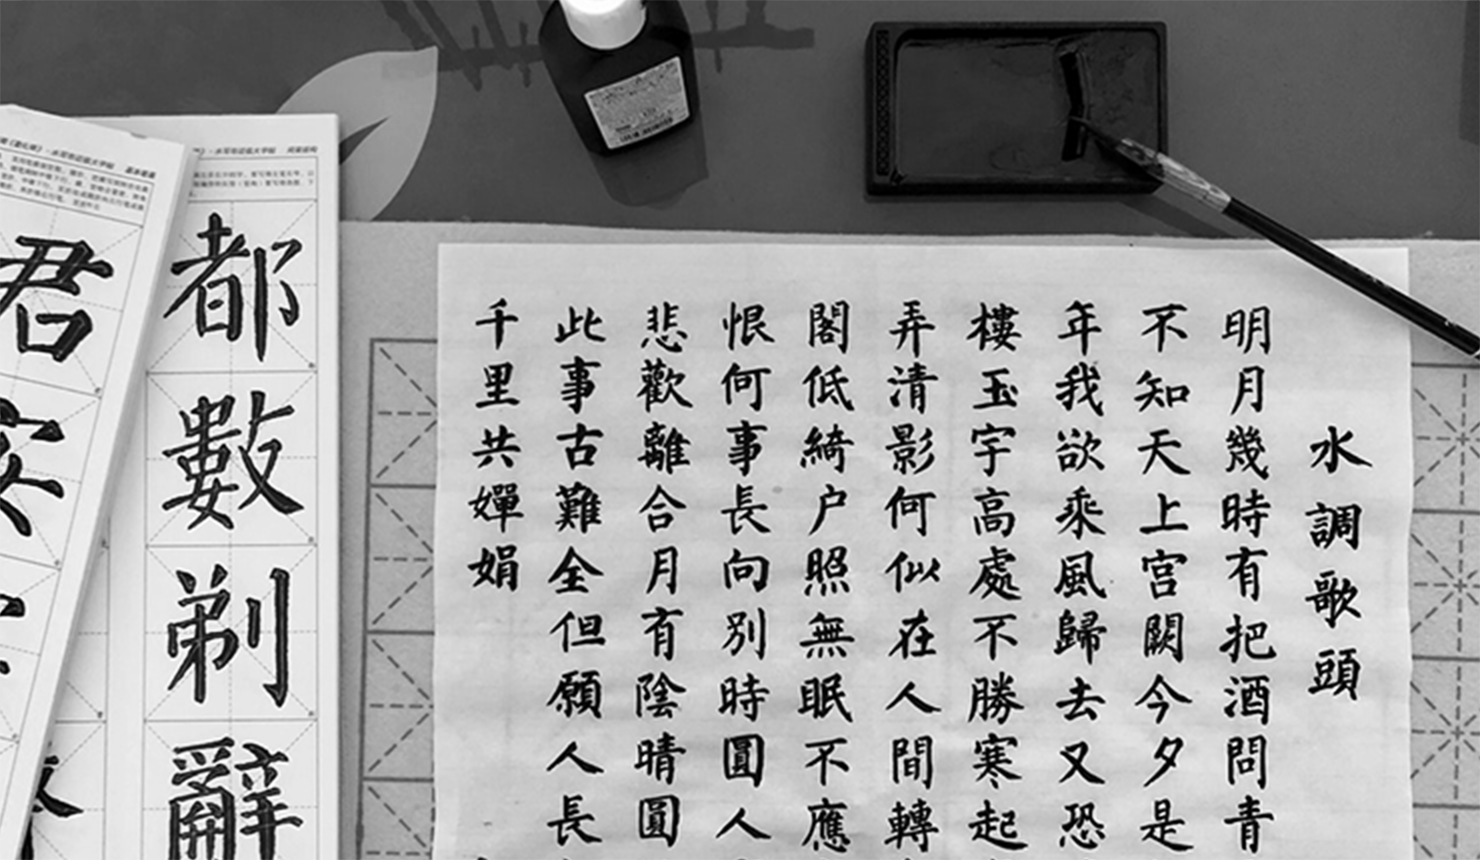 水調歌頭
明月幾時有把酒問青
不知天上宮闕今夕是
年我欲乘風歸去又恐
樓玉宇高處不勝寒起
弄清影何似在人間轉
閣低綺户照無眠不應
恨何事長向別時圓人
悲歡離合月有陰晴圓
此事古難全但願人長
千里共嬋娟
都數剃辭
君安